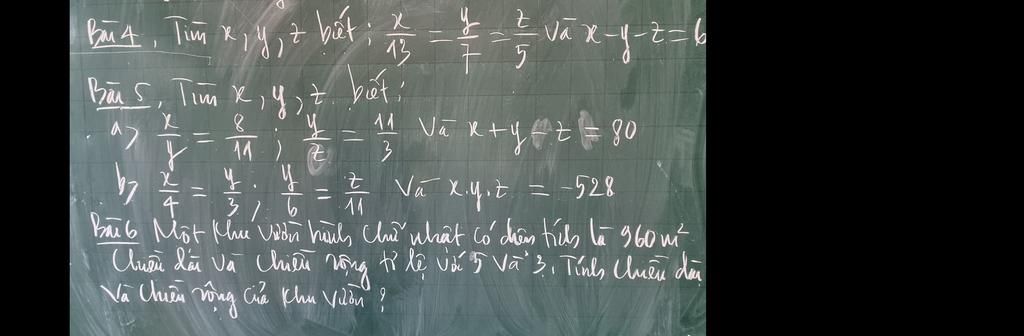 Bài 4, Tìm x, y, z biết: x/13 = y/7 = z/5 và x-y-z=6
Bài 5, Tìm x, y, z biết:
a> x/y = 8/11 ; y/z = 11/3 và x+y-z = 80
b> x/4 = y/3 ; y/6 = z/11 và x.y.z = -528
Bài 6 Một khu vườn hình chữ nhật có diện tích là 960 m²
Chiều dài và chiều rộng tỉ lệ với 5 và 3. Tính chiều dài
và chiều rộng của khu vườn?